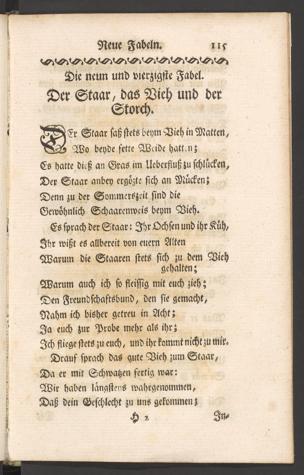 Neue Fabeln. 115
Die neun und vierzigste Fabel.
Der Staar, das Vieh und der
Storch.
DEr Staar saß stets beym Vieh in Matten,
Wo beyde fette Weide hatten;
Es hatte diß an Gras im Ueberfluß zu schlücken,
Der Staar anbey ergözte sich an Mücken;
Denn zu der Sommerszeit sind die
Gewöhnlich Schaarenweis beym Vieh.
Es sprach der Staar: Ihr Ochsen und ihr Küh,
Ihr wißt es allbereit von euern Alten
Warum die Staaren stets sich zu dem Vieh
gehalten;
Warum auch ich so fleissig mit euch zieh;
Den Freundschaftsbund, den sie gemacht,
Nahm ich bisher getreu in Acht;
Ja euch zur Probe mehr als ihr;
Ich fliege stets zu euch, und ihr kommt nicht zu mir.
Drauf sprach das gute Vieh zum Staar,
Da er mit Schwatzen fertig war:
Wir haben längstens wahrgenommen,
Daß dein Geschlecht zu uns gekommen;
H 2 In-